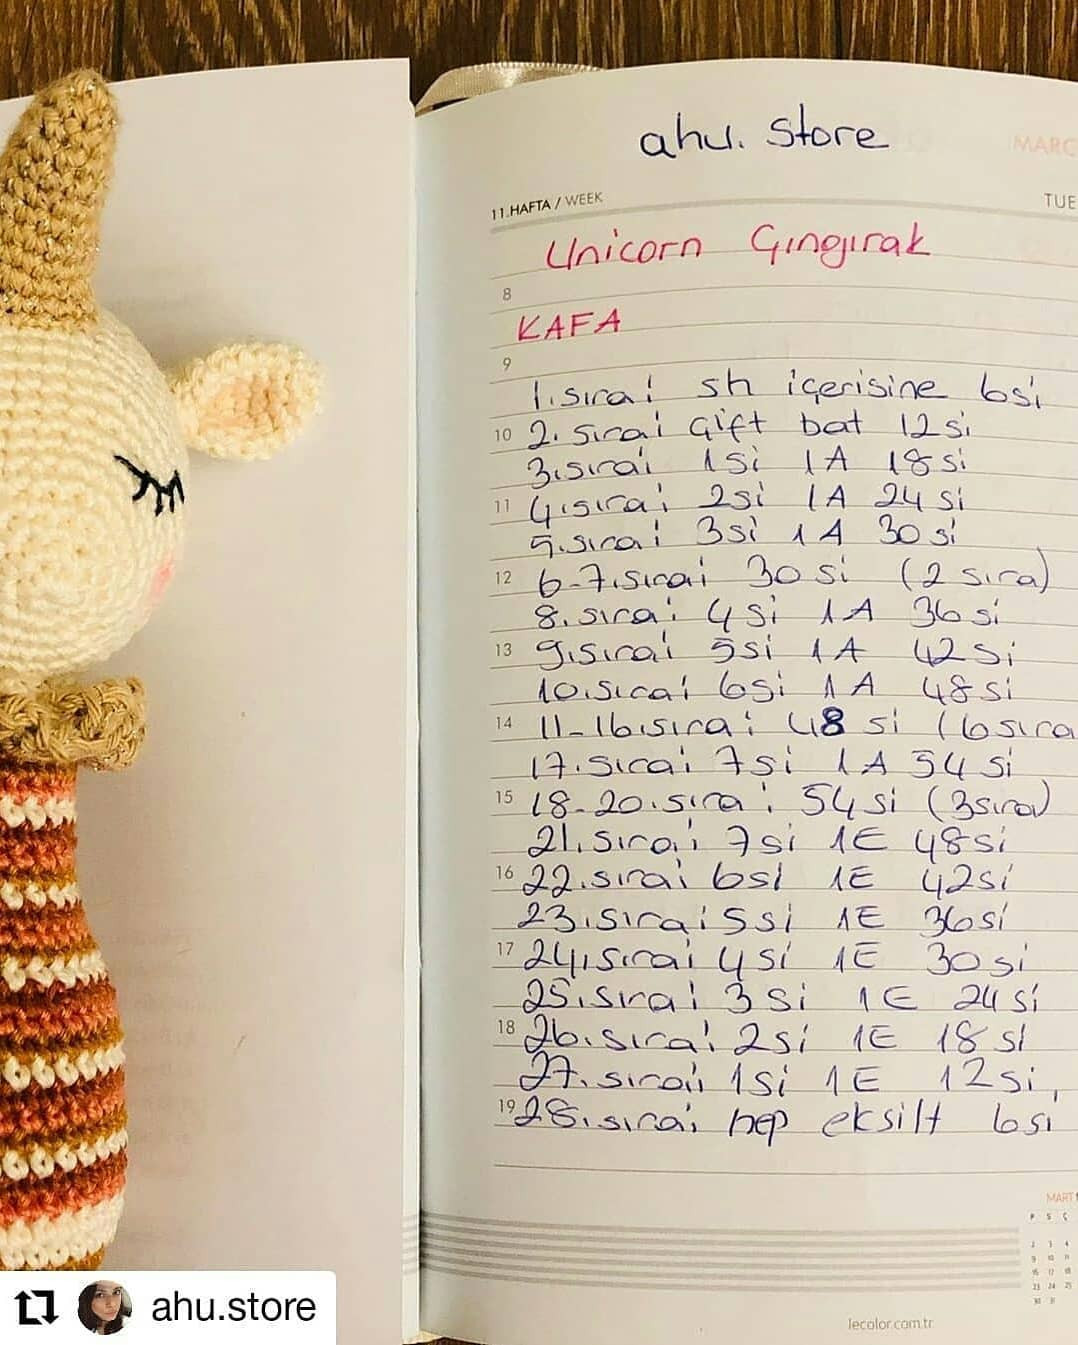 ahu. Store
MARÇ
11.HAFTA / WEEK
TUE
Unicorn Çıngırak
8
KAFA
9
1.sıra: sh içerisine 6si
10 2.sıra: Çift bat 12si
3.sıra: 1si 1A 18si
11 4.sıra: 2si 1A 24si
5.sıra: 3si 1A 30si
12 6-7.sıra: 30si (2 sıra)
8.sıra: 4si 1A 36si
13 9.sıra: 5si 1A 42si
10.sıra: 6si 1A 48si
14 11-16.sıra: 48 si (6sıra
17.sıra: 7si 1A 54si
15 18-20.sıra: 54si (3sıra)
21.sıra: 7si 1E 48si
16 22.sıra: 6si 1E 42si
23.sıra: 5si 1E 36si
17 24.sıra: 4si 1E 30si
25.sıra: 3si 1E 24si
18 26.sıra: 2si 1E 18si
27.sıra: 1si 1E 12si,
19 28.sıra: hep eksilt 6si
MART
P S Ç
2 3 4
9 10 11
16 17 18
23 24 25
30 31
lecolor.com.tr
ahu.store